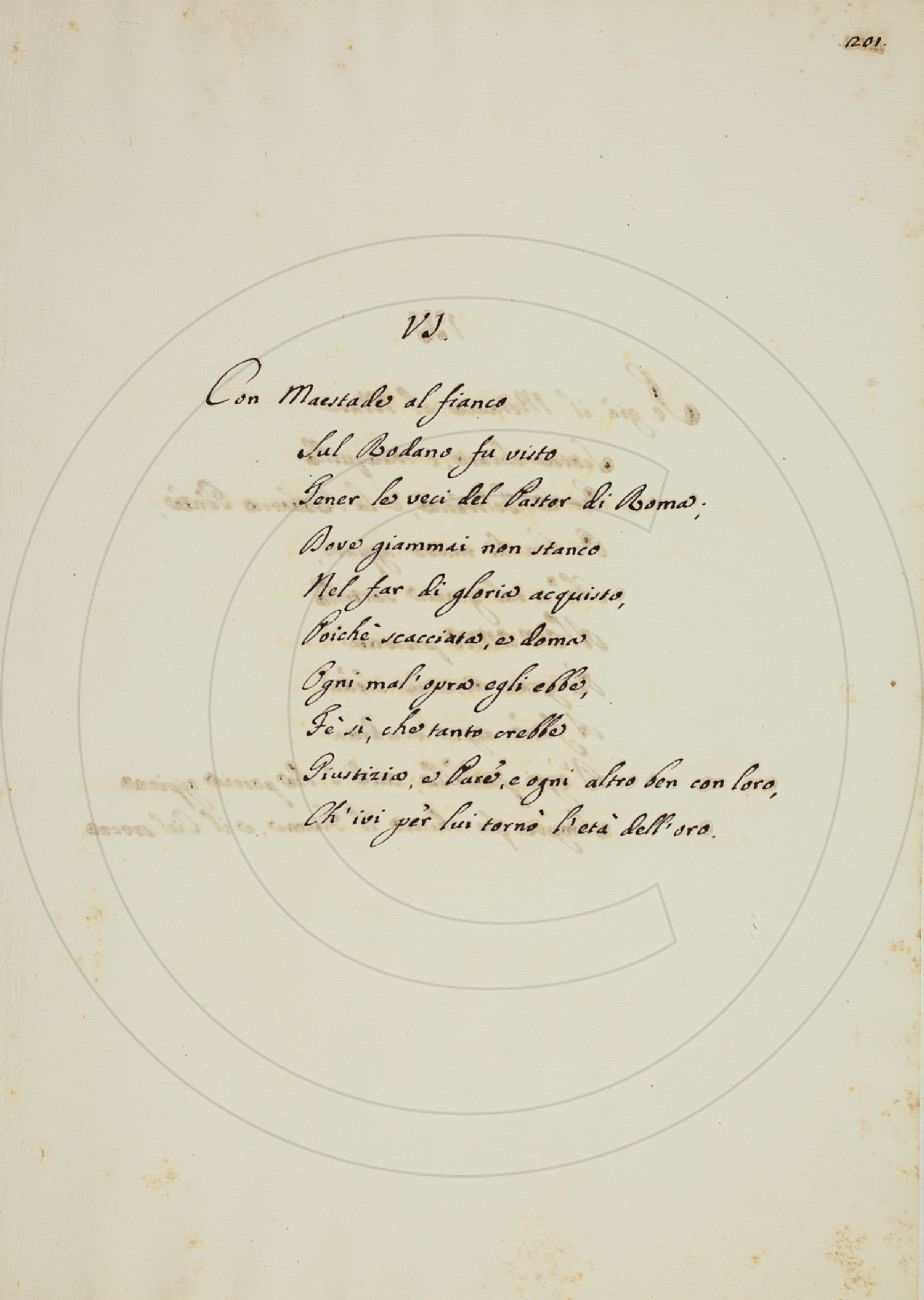 201.
VI.
Con Maestade al fianco
Sul Rodano fu visto
Tener le veci del Pastor di Roma;
Dove giammai non stanco
Nel far di gloria acquisto,
Poichè scacciata, e doma
Ogni mal' opra egli ebbe,
Fè sì, che tanto crebbe
Giustizia, e Pace, e ogni altro ben con loro,
Ch' ivi per lui tornò l'età dell'oro.